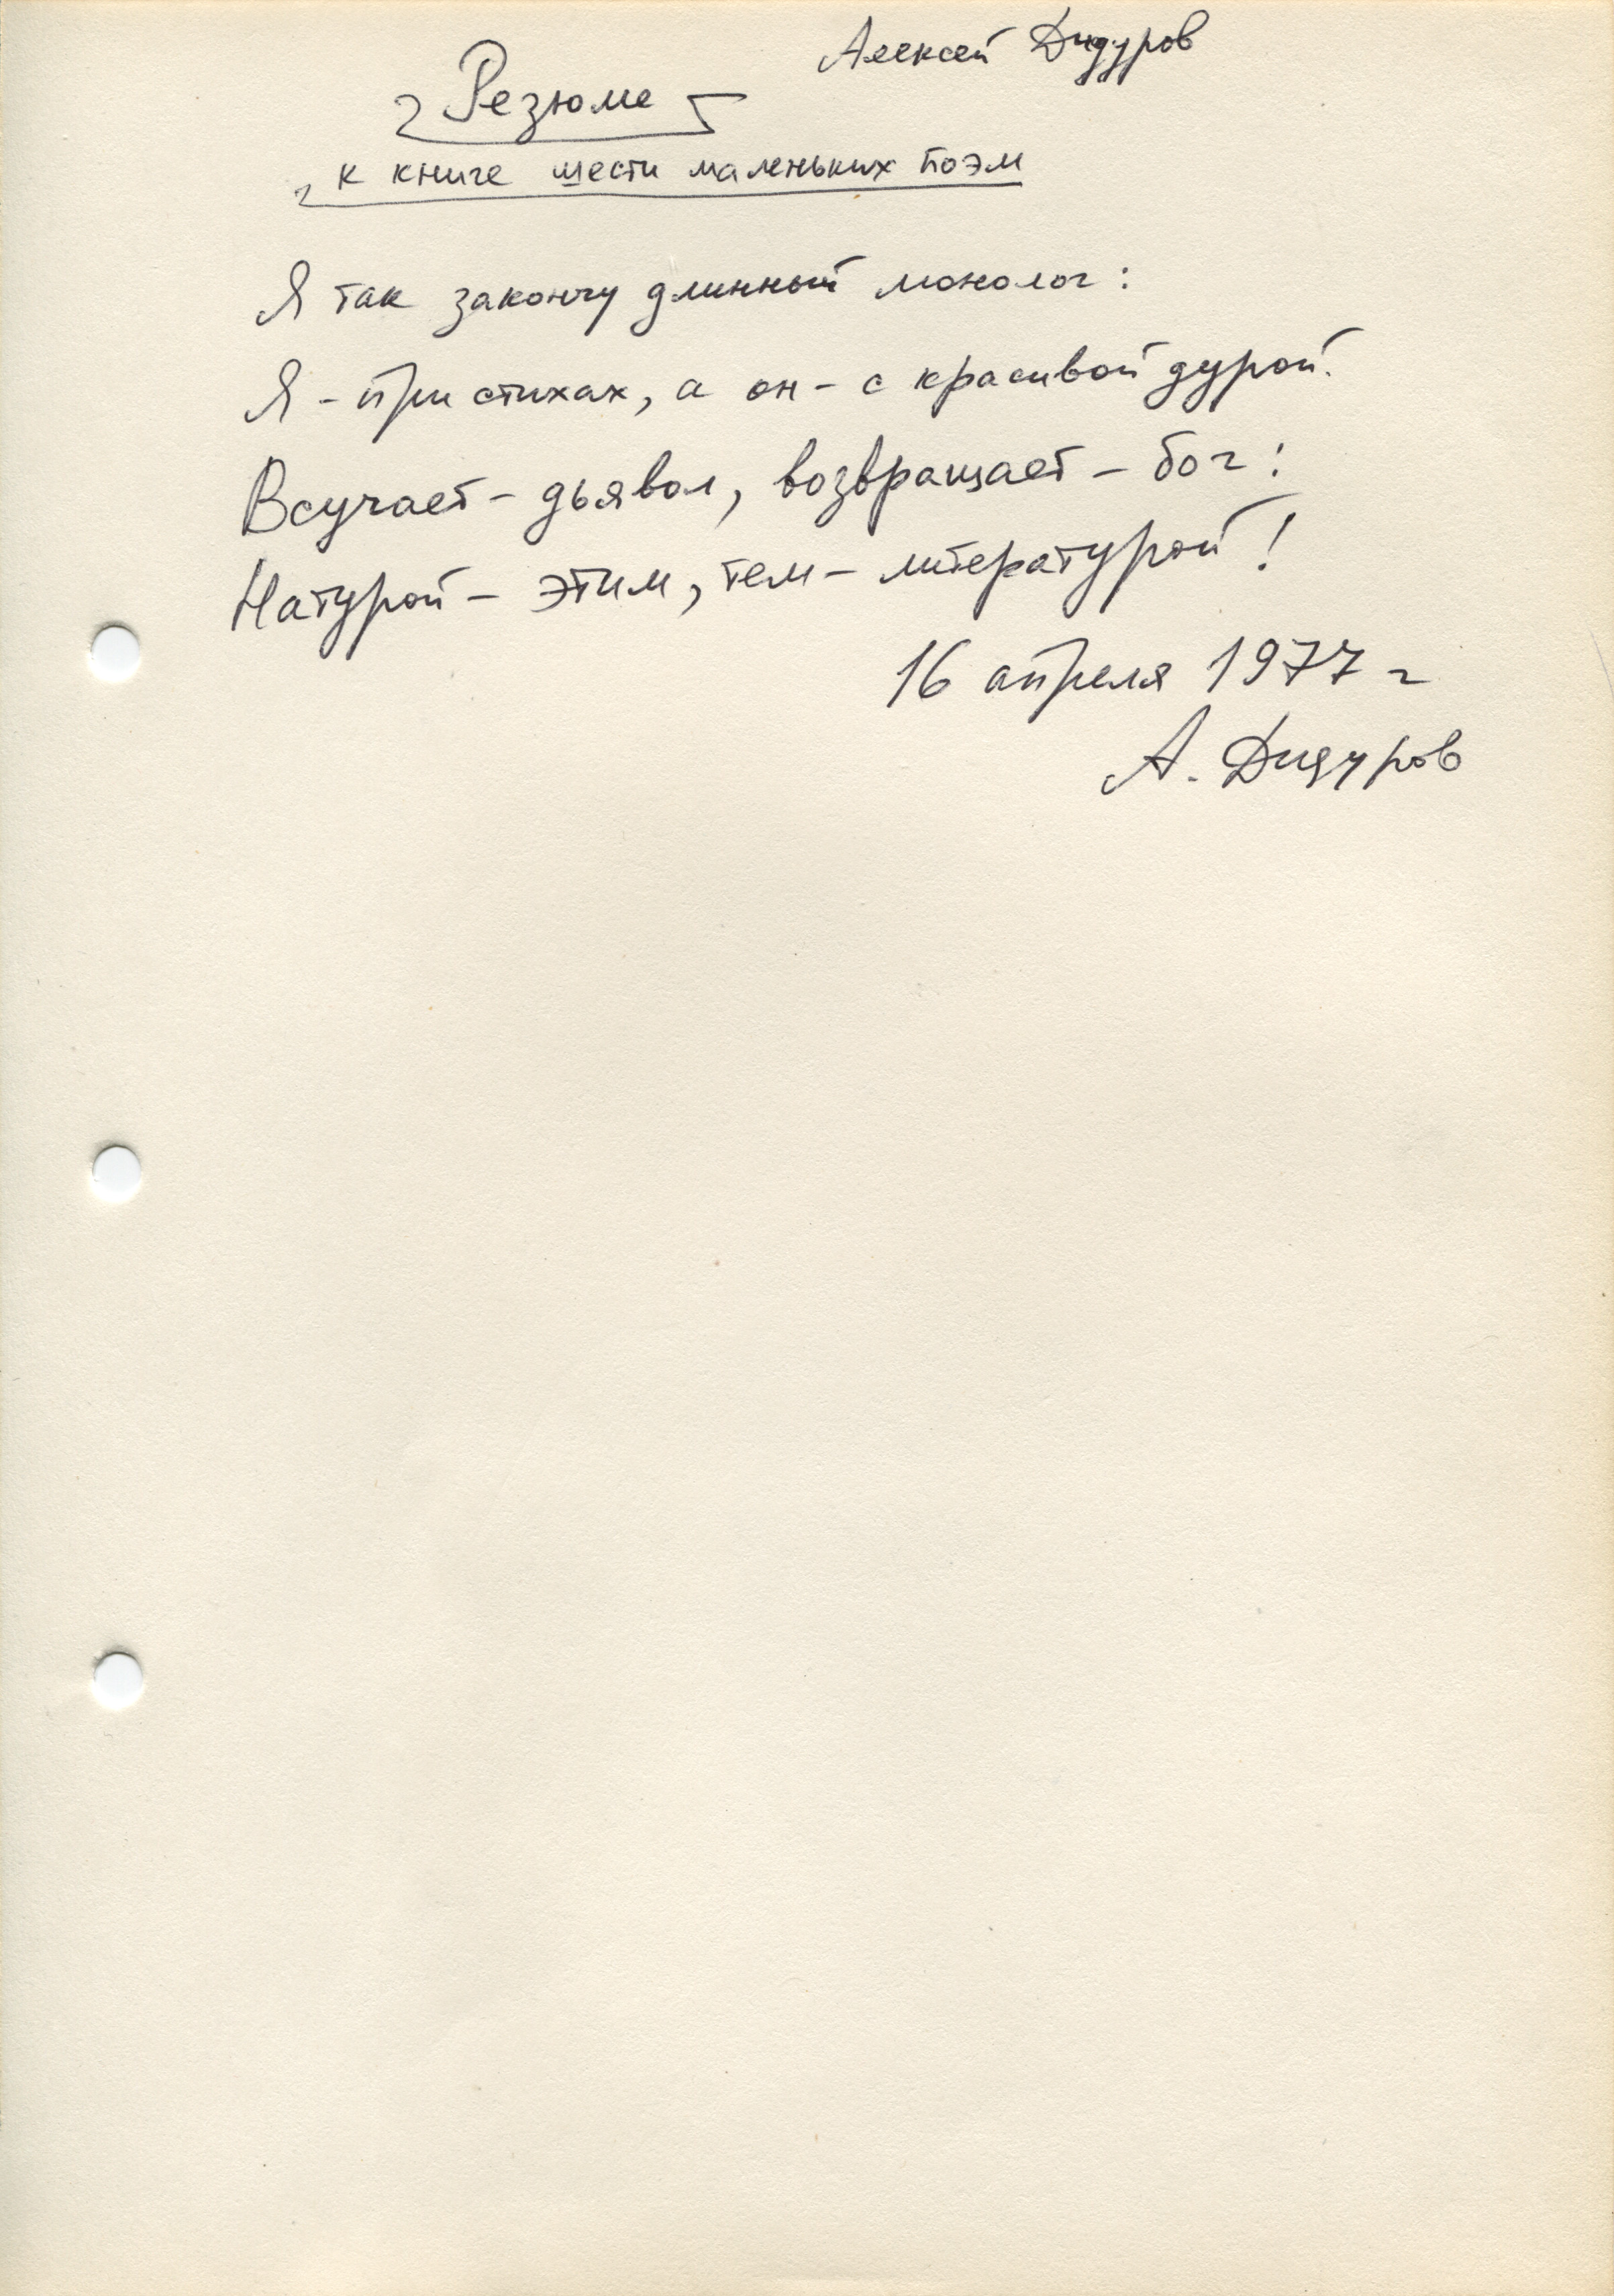 Алексей Дидуров
Резюме
к книге шести маленьких поэм
Я так закончу длинный монолог:
Я – при стихах, а он – с красивой дурой.
Всучает – дьявол, возвращает – бог:
Натурой – этим, тем – литературой!
16 апреля 1977 г
А. Дидуров